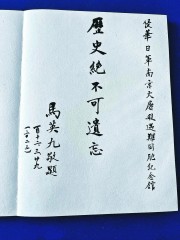 侵華日軍南京大屠殺遇難同胞紀念館
歷史絕不可遺忘
馬英九敬題
一百十二、三、廿九
(二〇二三)